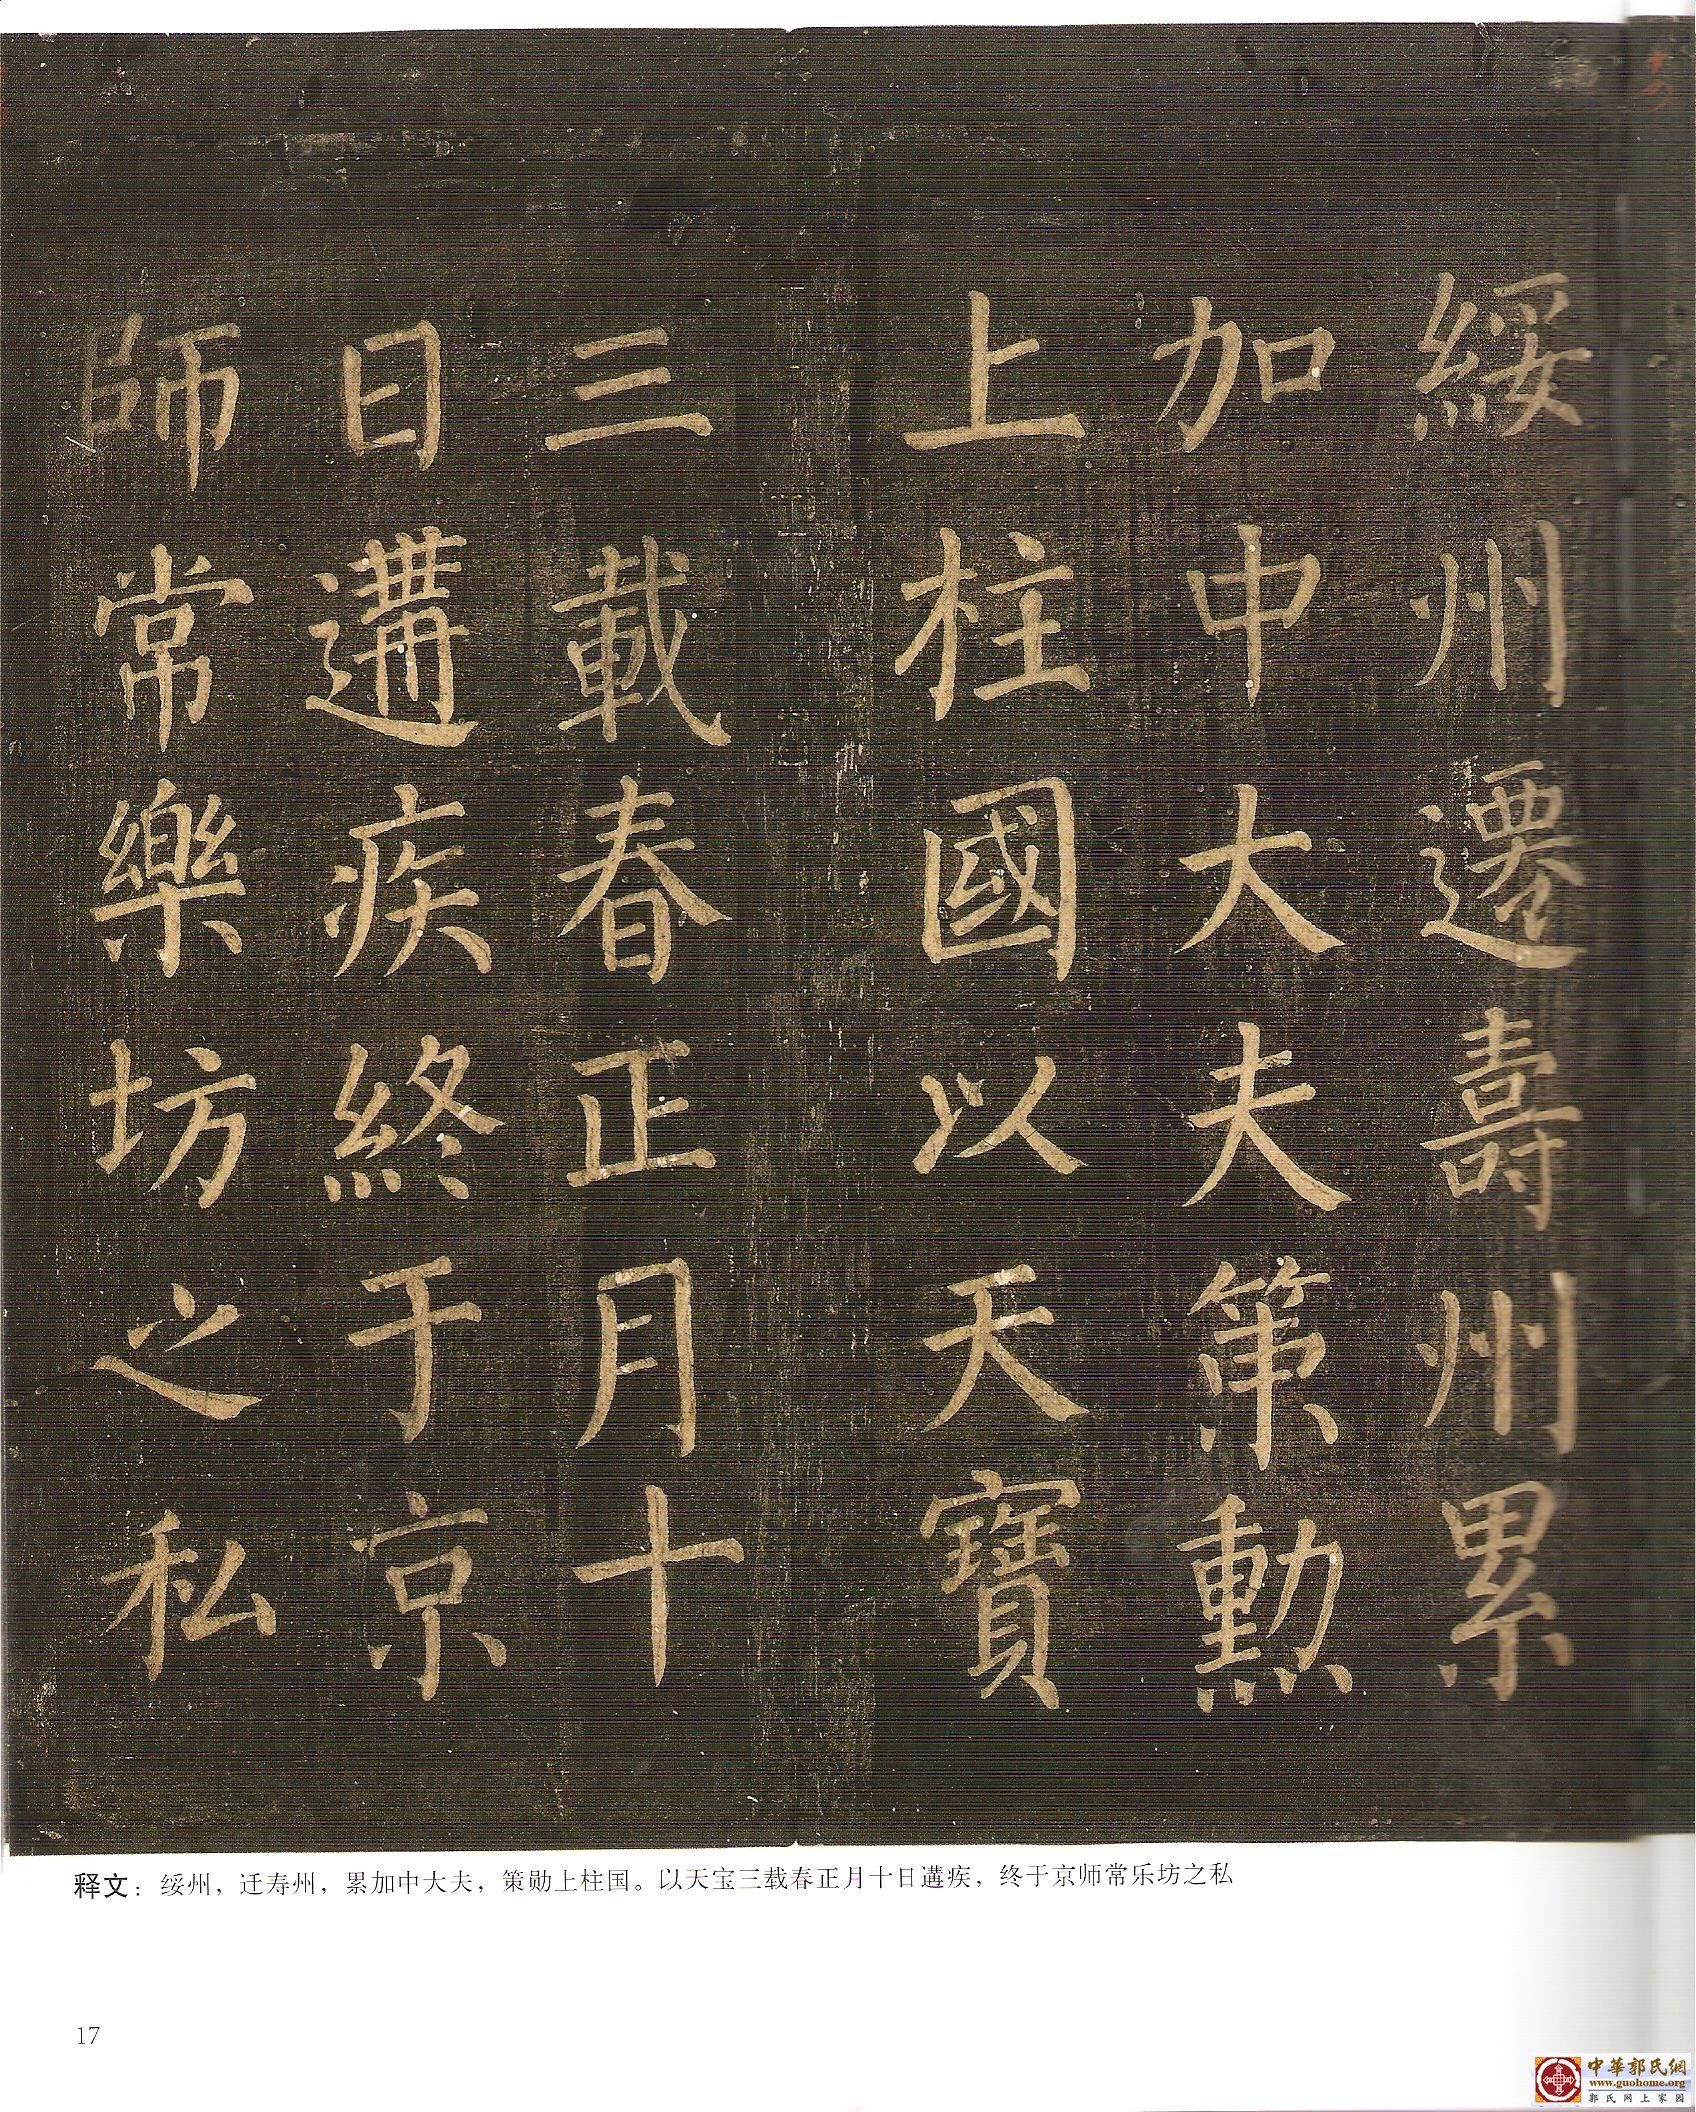 綏州遷壽州累
加中大夫策勳
上柱國以天寶
三載春正月十
日遘疾終于京
師常樂坊之私
释文：绥州，迁寿州，累加中大夫，策勋上柱国。以天宝三载春正月十日遘疾，终于京师常乐坊之私
17
中華郭氏網
www.guohome.org
郭氏网上家园